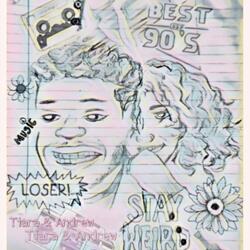 BEST
OF THE
90'S
MUSIC
LOSER!
Tiara & Andrew
Tiara & Andrew
STAY
WEIRD